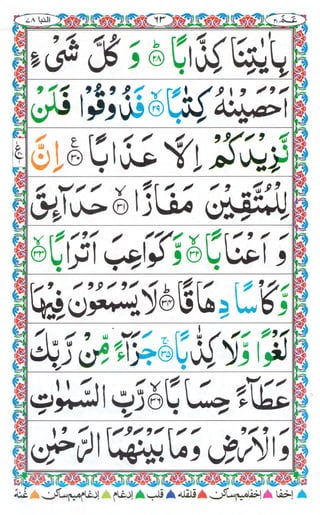 عـمّ ٣٠ ٦٣ النبا ٧٨
بِاٰيٰتِنَا كِذَّابًا ﴿٢٨﴾ وَ كُلَّ شَیْءٍ
اَحْصَيْنٰهُ كِتٰبًا ﴿٢٩﴾ فَذُوْقُوْا فَلَنْ
نَّزِيْدَكُمْ اِلَّا عَذَابًا ﴿٣٠﴾ اِنَّ
لِلْمُتَّقِيْنَ مَفَازًا ﴿٣١﴾ حَدَآئِقَ
وَ اَعْنَابًا ﴿٣٢﴾ وَّكَوَاعِبَ اَتْرَابًا ﴿٣٣﴾
وَّكَاْسًا دِهَاقًا ﴿٣٤﴾ لَا يَسْمَعُوْنَ فِيْهَا
لَغْوًا وَّلَا كِذّٰبًا ﴿٣٥﴾ جَزَآءً مِّنْ رَّبِّكَ
عَطَآءً حِسَابًا ﴿٣٦﴾ رَّبِّ السَّمٰوٰتِ
وَالْاَرْضِ وَمَا بَيْنَهُمَا الرَّحْمٰنِ
اخفا اخفا میم ساکن قلقلہ قلب ادغام ادغام میم ساکن غنہ